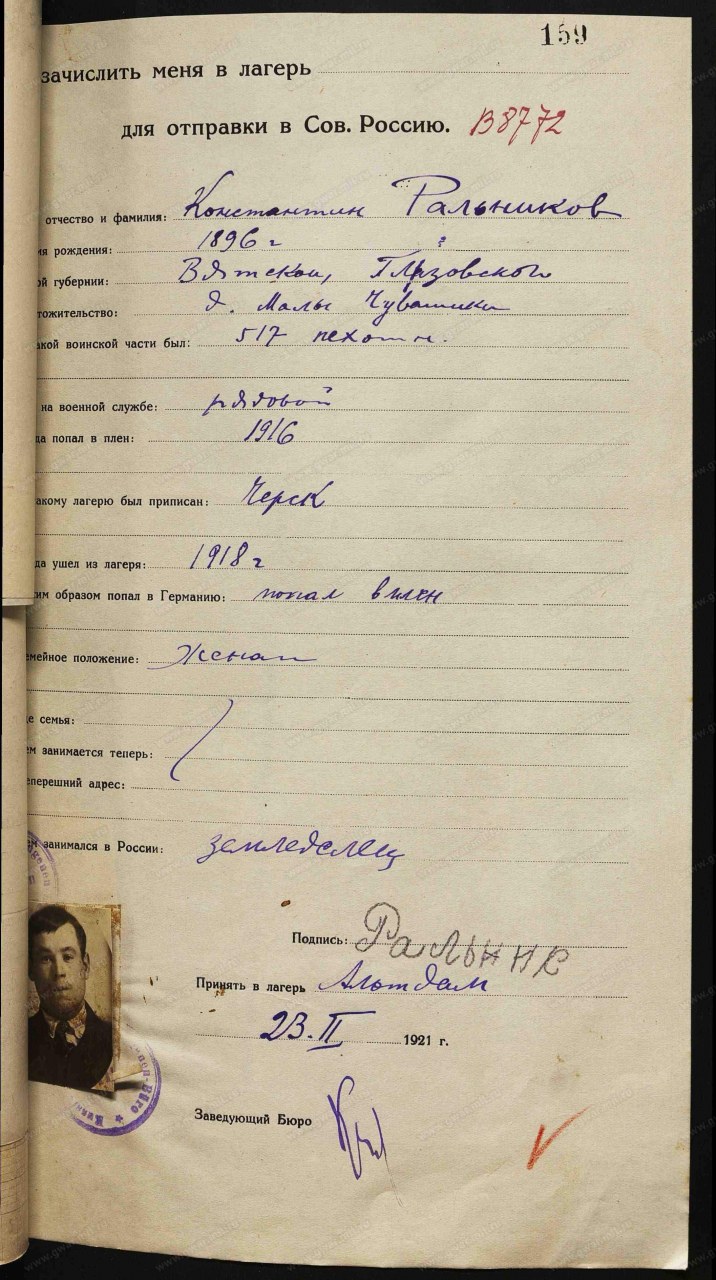 159
зачислить меня в лагерь
для отправки в Сов. Россию. В8772
отчество и фамилия: Константин Ральников
ия рождения: 1896 г
ой губернии: Вятской, Глазовского
тожительство: д. Малы Чувашики
акой воинской части был: 517 пехотн.
на военной службе: рядовой
да попал в плен: 1916
акому лагерю был приписан: Черск
да ушел из лагеря: 1918 г
им образом попал в Германию: попал в плен
емейное положение: Женат
де семья:
ем занимается теперь:
еперешний адрес:
ем занимался в России: земледелец
Подпись: Ральник
Принять в лагерь Альтдам
23.II 1921 г.
Заведующий Бюро